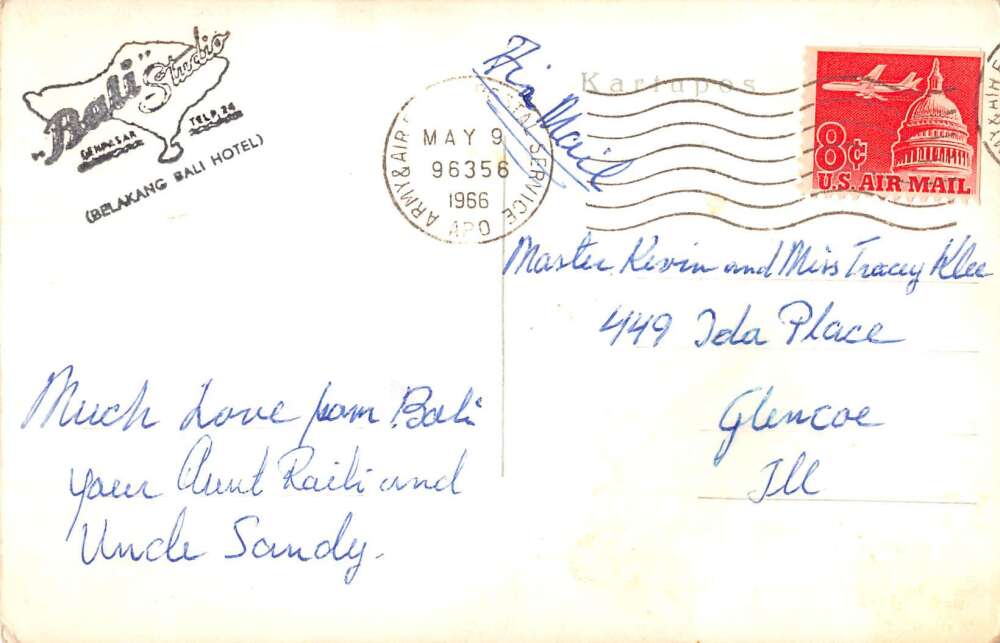 "Bali" Studio
DENPASAR TELP. 24
(BELAKANG BALI HOTEL)
Kartupos
Air Mail
ARMY & AIR POSTAL SERVICE
MAY 9
96356
1966
APO
8¢
U.S. AIR MAIL
Master Kevin and Miss Tracey Klee
449 Ida Place
Glencoe
Ill
Much Love from Bali
your Aunt Raili and
Uncle Sandy.